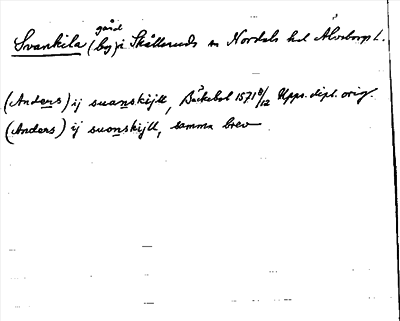 gård
Svankila (by) i Skålleruds sn Nordals hd Älvsborgs l.
(Anders) ij suanskijll, Bäckebol 1571 8/12 Upps. dipl. orig.
(Anders) ij suonskijll, samma brev